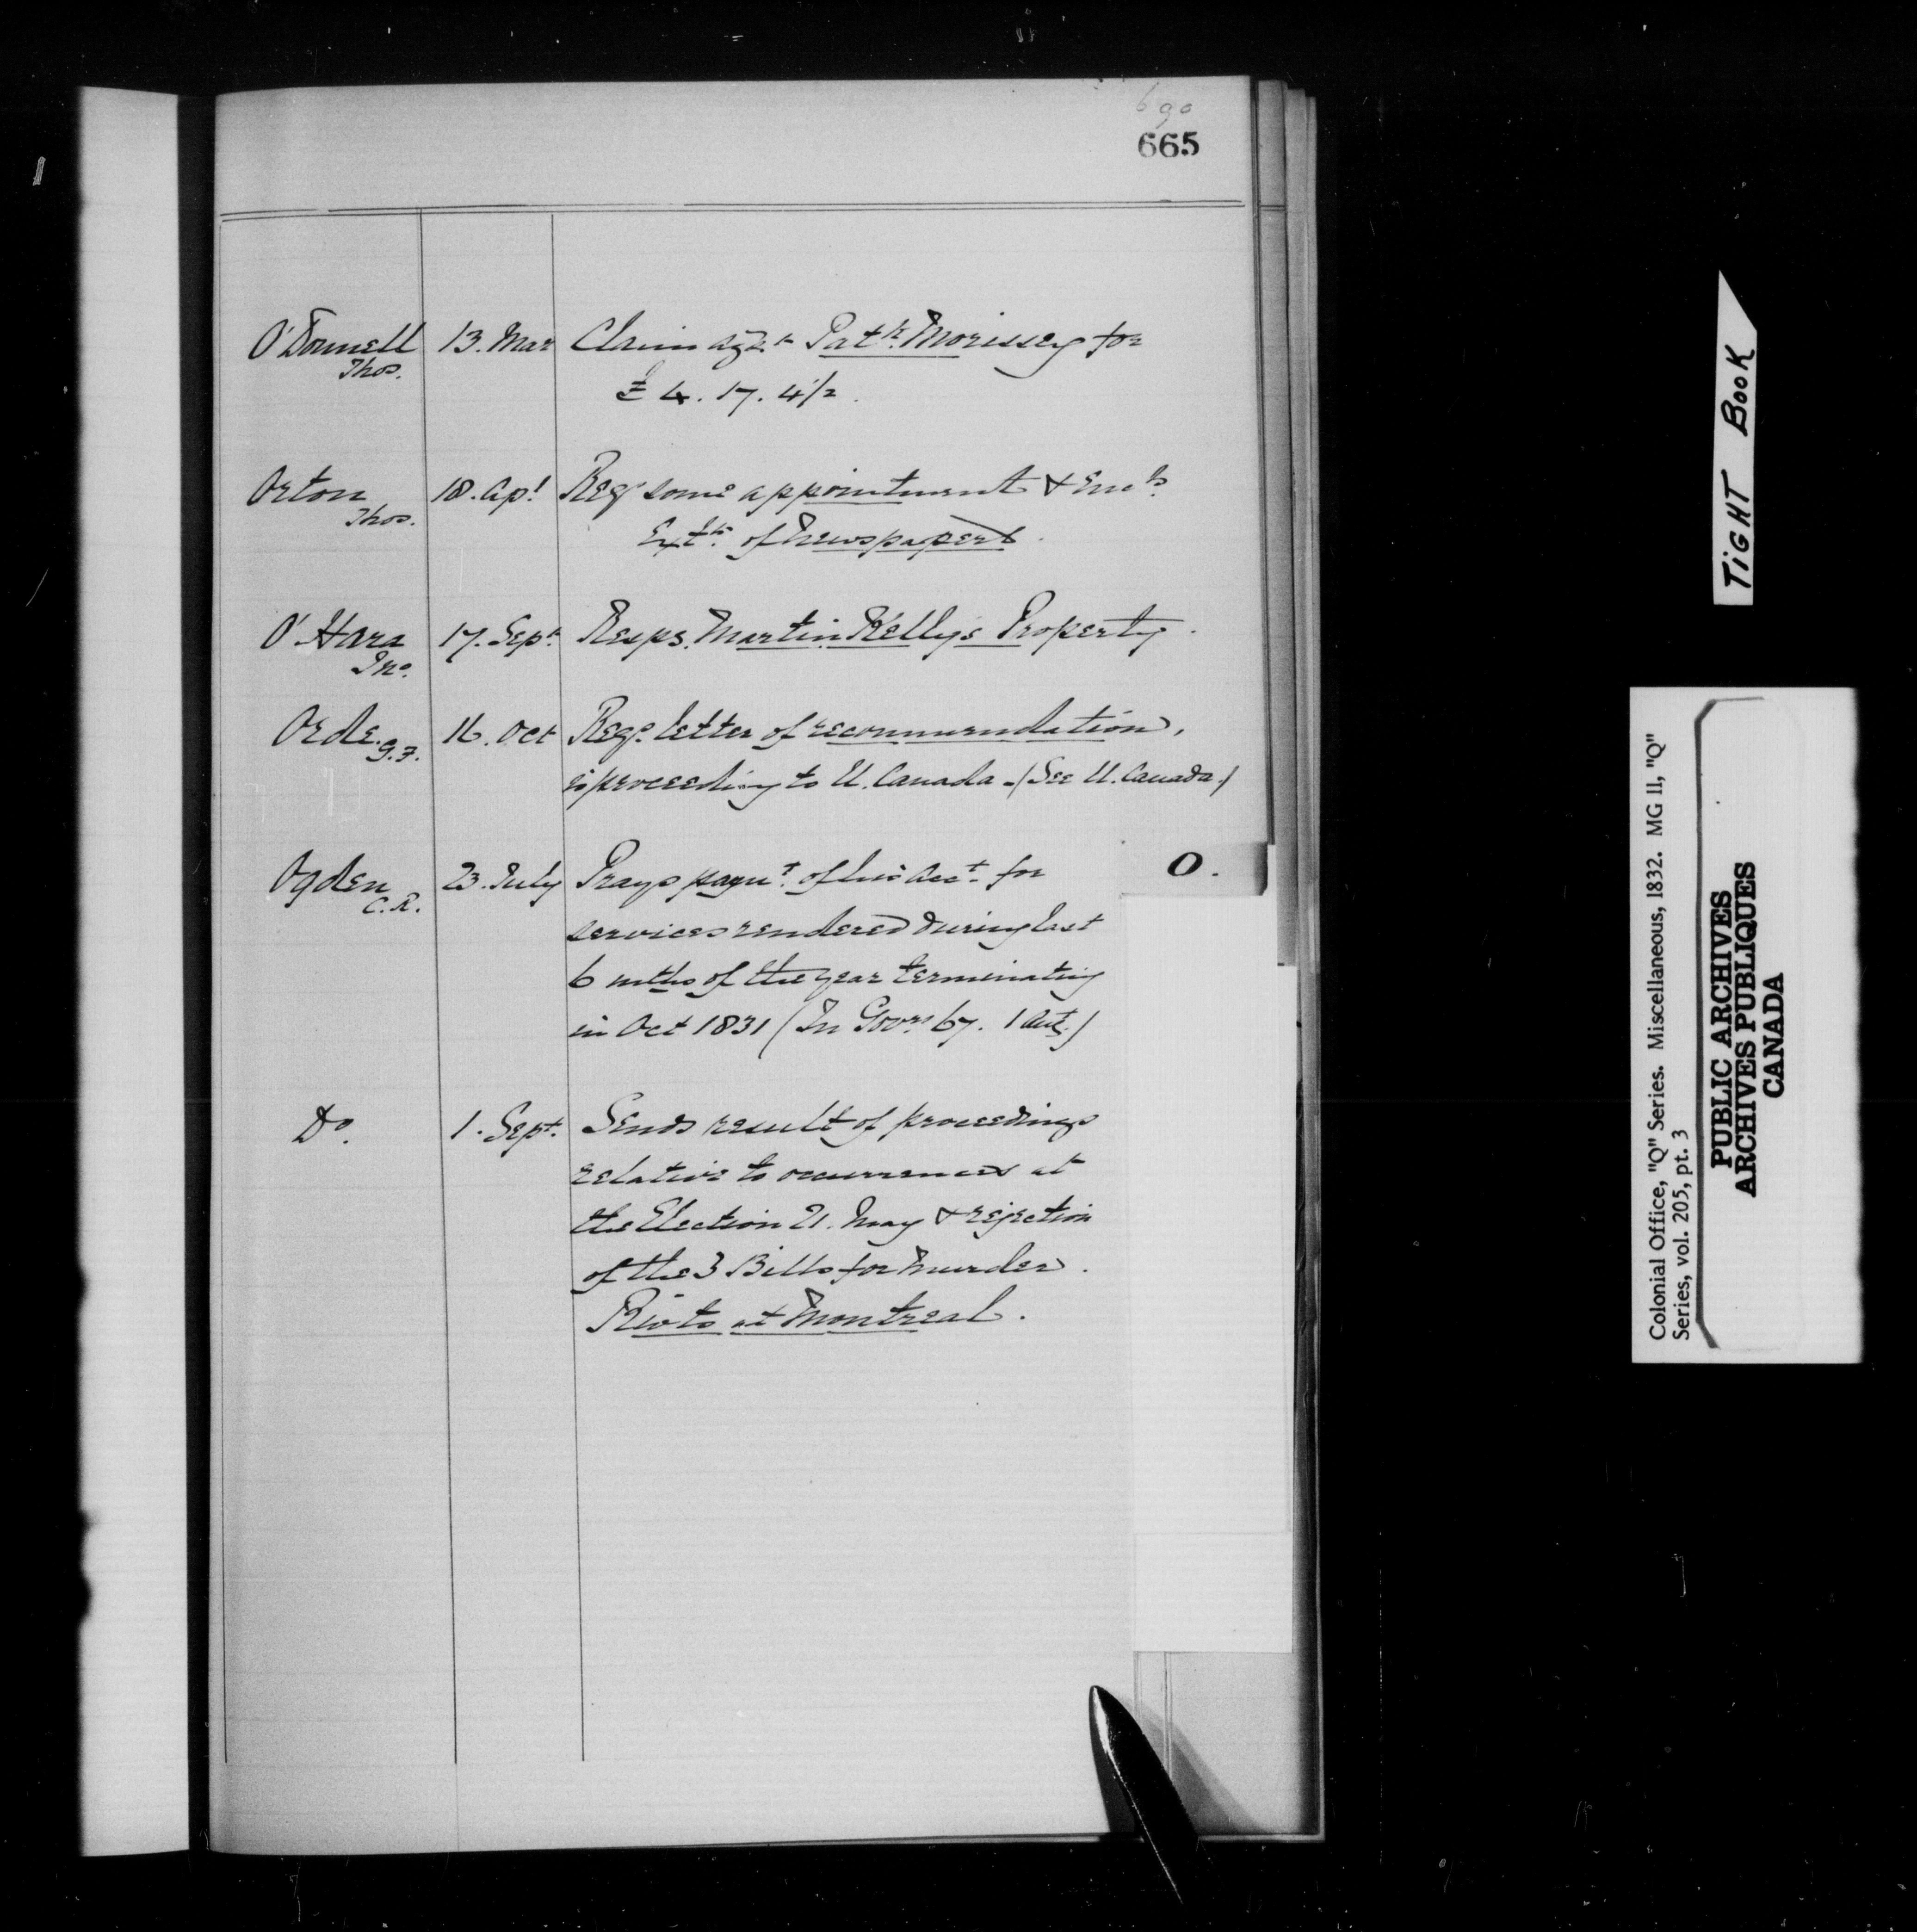 690
665
O'Donnell Thos. 13. Mar Claim agst. Patk. Morissey for
£ 4. 17. 4 1/2.
Orton Thos. 18. Apl. Reqs some appointment & Encs.
Extts. of Newspapers.
O'Hara Jno. 17. Sept. Resps. Martin Kelly's Property.
Orde G.F. 16. Oct Reqs. letter of recommendation,
is proceeding to U. Canada - (See U. Canada.)
Ogden C.R. 23. July Prays paymt. of his Acct. for
services rendered during last
6 mths of the year terminating
in Oct 1831 (In Govrs 67. 1 Aut.)
Do. 1. Sept. Sends result of proceedings
relative to occurrences at
the Election 21. May & rejection
of the 3 Bills for Murder.
Riots at Montreal.
O.
TiGHT BooK
Colonial Office, "Q" Series. Miscellaneous, 1832. MG 11, "Q"
Series, vol. 205, pt. 3
PUBLIC ARCHIVES
ARCHIVES PUBLIQUES
CANADA